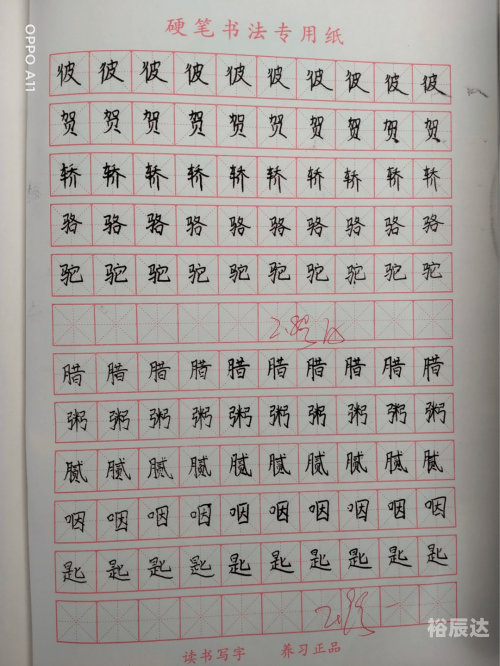 OPPO A11
硬笔书法专用纸
彼彼彼彼彼彼彼彼彼彼
贺贺贺贺贺贺贺贺贺贺
轿轿轿轿轿轿轿轿轿轿
骆骆骆骆骆骆骆骆骆骆
驼驼驼驼驼驼驼驼驼驼
腊腊腊腊腊腊腊腊腊腊
粥粥粥粥粥粥粥粥粥粥
腻腻腻腻腻腻腻腻腻腻
咽咽咽咽咽咽咽咽咽咽
匙匙匙匙匙匙匙匙匙匙
读书写字 养习正品
裕辰达